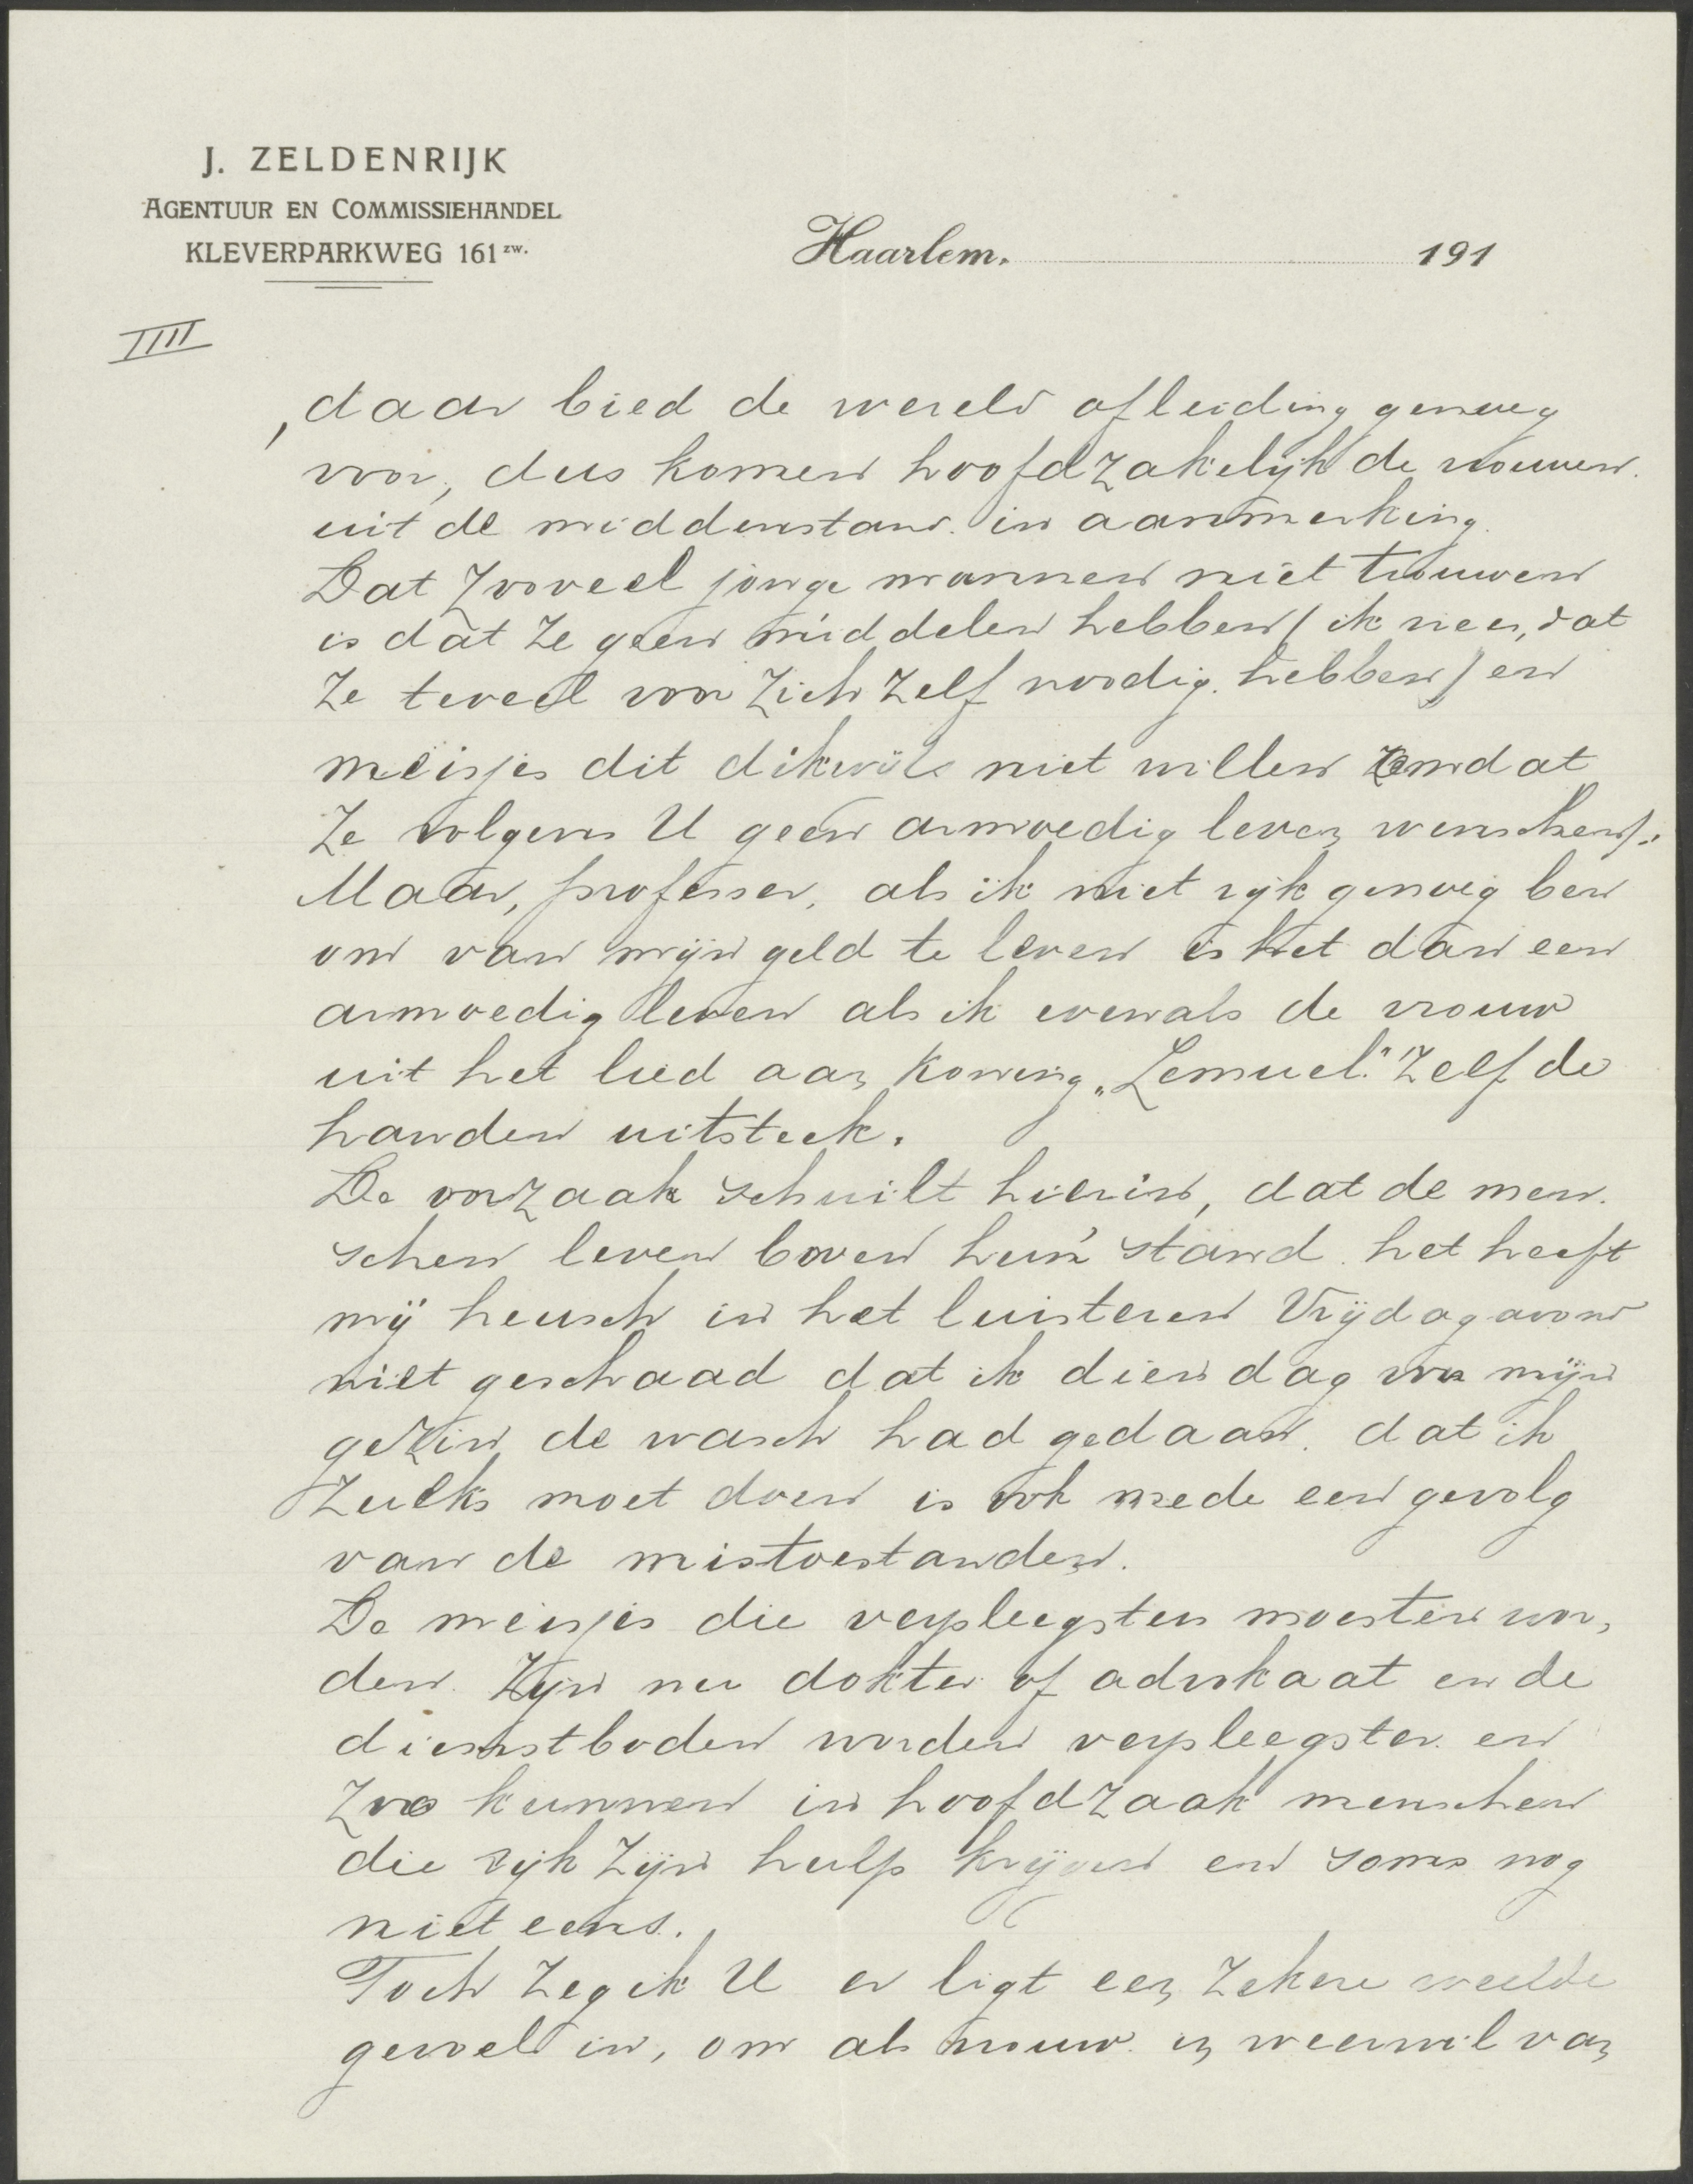 J. ZELDENRIJK
AGENTUUR EN COMMISSIEHANDEL
KLEVERPARKWEG 161 zw.
Haarlem, 191
IIII
, daar bied de wereld afleiding genoeg
voor, dus komen hoofdzakelijk de vrouwen
uit de middenstand in aanmerking.
Dat zooveel jonge mannen niet trouwen
is dat ze geen middelen hebben (ik vrees, dat
ze teveel voor zich zelf noodig hebben) en
meisjes dit dikwijls niet willen omdat
ze volgens U geen armoedig leven wenschen).
Maar, professer, als ik niet rijk genoeg ben
om van mijn geld te leven is het dan een
armoedig leven als ik evenals de vrouw
uit het lied aan Koning „Lemuel" zelf de
handen uitsteek.
De oorzaak schuilt hierin, dat de men-
schen leven boven hun stand. het heeft
mij heusch in het luisteren Vrijdagavond
niet geschaad dat ik dien dag voor mijn
gezin de wasch had gedaan. dat ik
zulks moet doen is ook mede een gevolg
van de mistoestanden.
De meisjes die verpleegsters moesten wor,
den zijn nu dokter of advokaat en de
dienstboden worden verpleegster en
zoo kunnen in hoofdzaak menschen
die rijk zijn hulp krijgen en soms nog
niet eens.
Toch zeg ik U er ligt een zekere weelde
gevoel in, om als vrouw in weerwil van